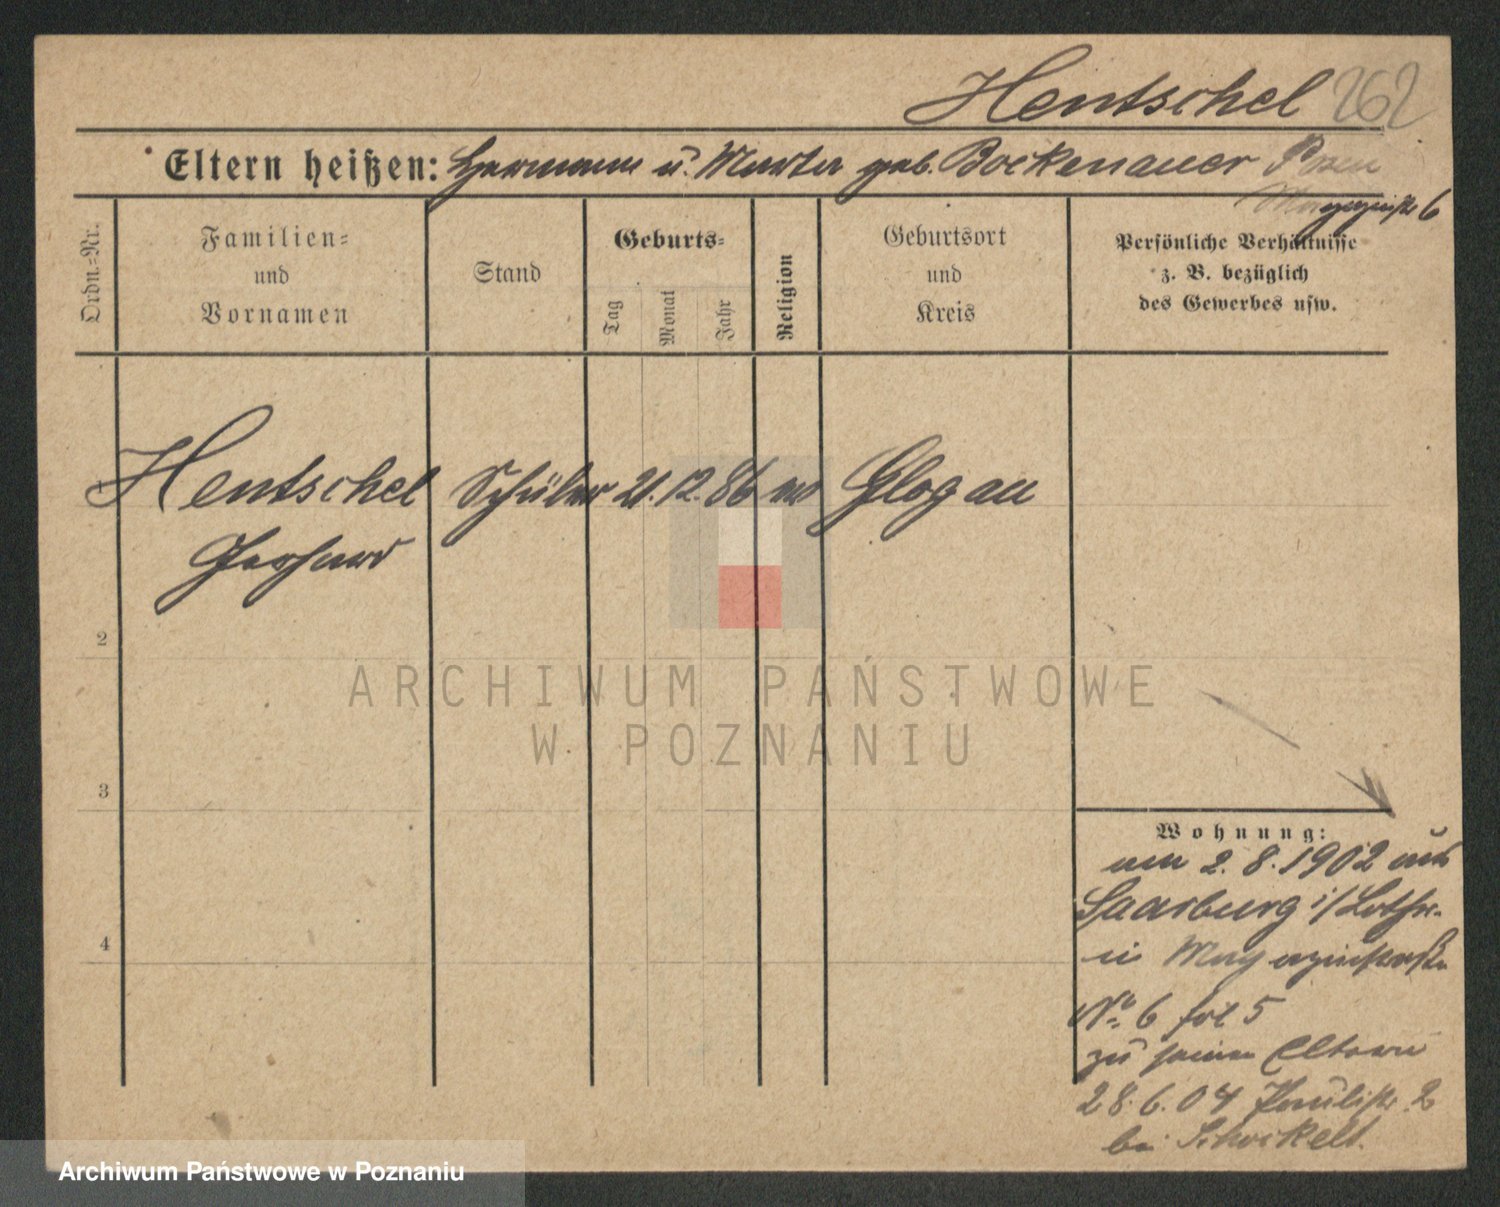 Hentschel 262
Eltern heißen: Hermann u. Marta geb. Bockenauer Posen
Magazinstr 6
Ordn.=Nr.
Familien=
und
Vornamen
Stand
Geburts=
Tag
Monat
Jahr
Religion
Geburtsort
und
Kreis
Persönliche Verhältnisse
z. B. bezüglich
des Gewerbes usw.
Hentschel Schüler 21. 12. 86 ev Glogau
Gerhard
2
3
4
Wohnung:
am 2. 8. 1902 aus
Saarburg i/Lothr.
in Magazinstraße
No 6 fol 5
zu seinen Eltern
28. 6. 04 Paulistr. 2
bei
ARCHIWUM PAŃSTWOWE
W POZNANIU
Archiwum Państwowe w Poznaniu